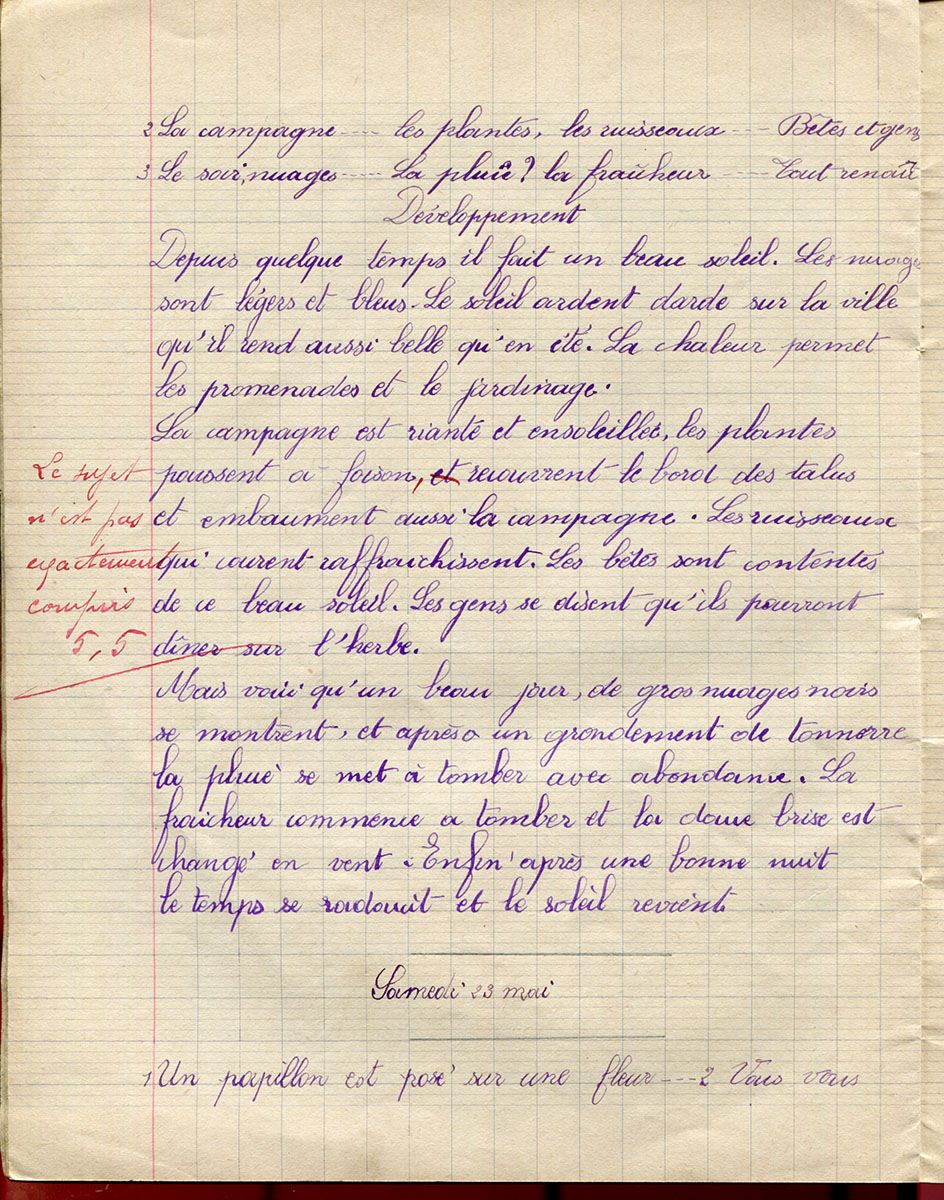 2 La campagne ---- les plantes, les ruisseaux --- Bêtes et gens
3 Le soir, nuages ---- La pluie ? la fraîcheur ---- Tout renaît
Développement
Depuis quelque temps il fait un beau soleil. Les nuages
sont légers et bleus. Le soleil ardent darde sur la ville
qu'il rend aussi belle qu'en été. La chaleur permet
les promenades et le jardinage.
La campagne est riante et ensoleillée, les plantes
poussent a foison, et recouvrent le bord des talus
et embaument aussi la campagne. Les ruisseaux
qui courent raffraichissent. Les bêtes sont contentes
de ce beau soleil. Les gens se disent qu'ils pourront
dîner sur l'herbe.
Le sujet
n'est pas
exactement
compris
5,5
Mais voici qu'un beau jour, de gros nuages noirs
se montrent, et après un grondement de tonnerre
la pluie se met à tomber avec abondance. La
fraicheur commence a tomber et la douce brise est
changé en vent. Enfin après une bonne nuit
le temps se radoucit et le soleil revient.
Samedi 23 mai
1 Un papillon est posé sur une fleur --- 2 Vous vous